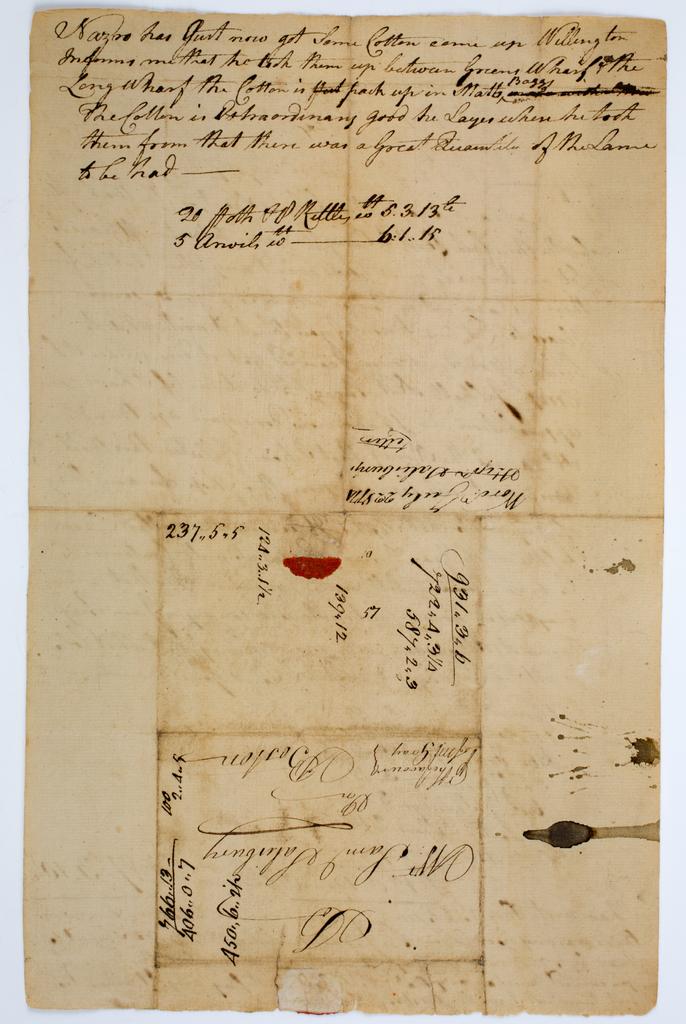 Nazro has Just now got Some Cotton came up Willington
Informs me that he took them up between Greens Wharf & the
Long Wharf the Cotton is put pack up in Matts Baggs
The Cotton is Extraordinary good he Sayes where he took
them from that there was a Great Quantity of the Same
to be had —
20 Potts & Kettles wtt 5.3.13
5 Anvils wtt — 6.1.15
Letter
Stepn Salisbury's
Worcr July 22 1774
237,,5,,5
124,,3,,1/2
139,,12
57
587,,2,,3
722,,4,,3 1/2
931,,3,,6
To
Mr Sam Salisbury
In
Boston
Pr favour
of Mr Gray
100
2,,4,,5
766,,13
406,,0,,7
450,,6,,2 1/2